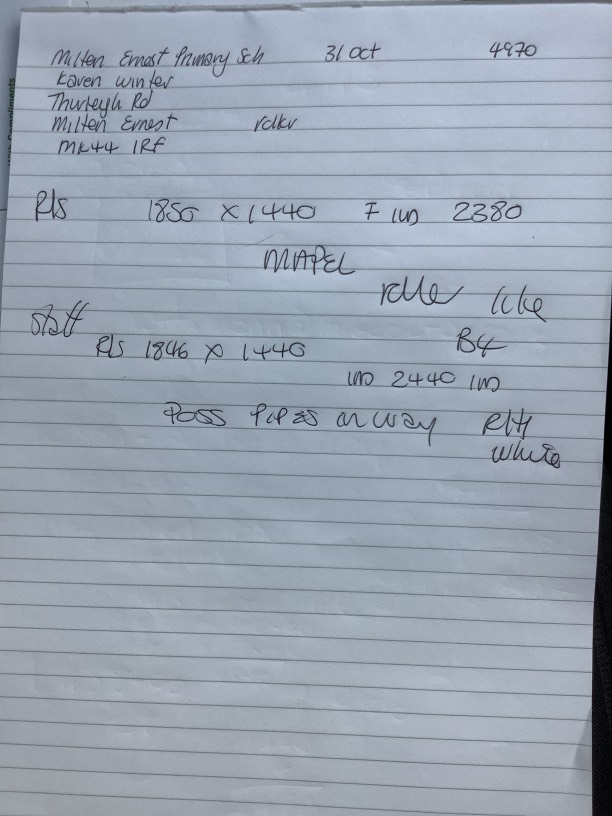 Milten Ernest Primary Sch 31 Oct 4970
Karen Winter
Thurleigh Rd
Milten Ernest
MK44 1RF
Rls 1850 x 1440 F 2380
MAPEL
like
Staff
Rls 1846 x 1440
2440
Poss Pipes in way RH
White